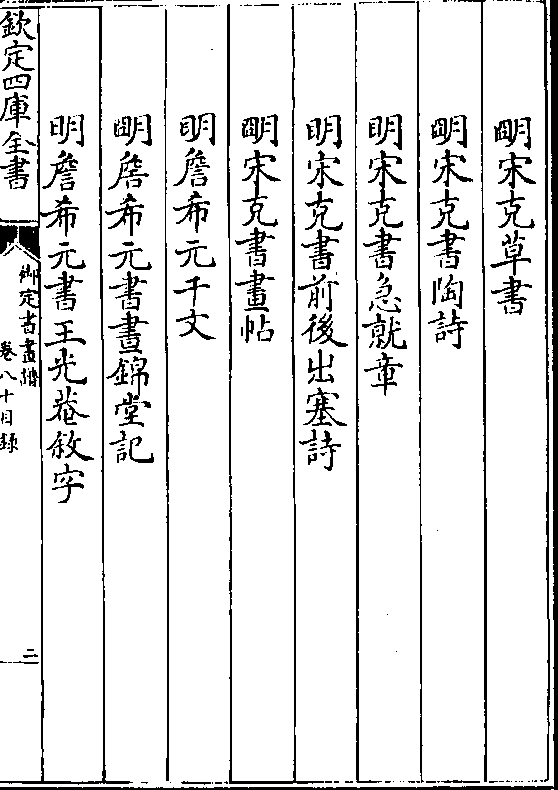 明宋克草書
明宋克書陶詩
明宋克書急就章
明宋克書前後出塞詩
明宋克書畫帖
明詹希元千文
明詹希元書晝錦堂記
明詹希元書王光菴敘字
欽定四庫全書
御定書畫譜
卷八十目錄
二